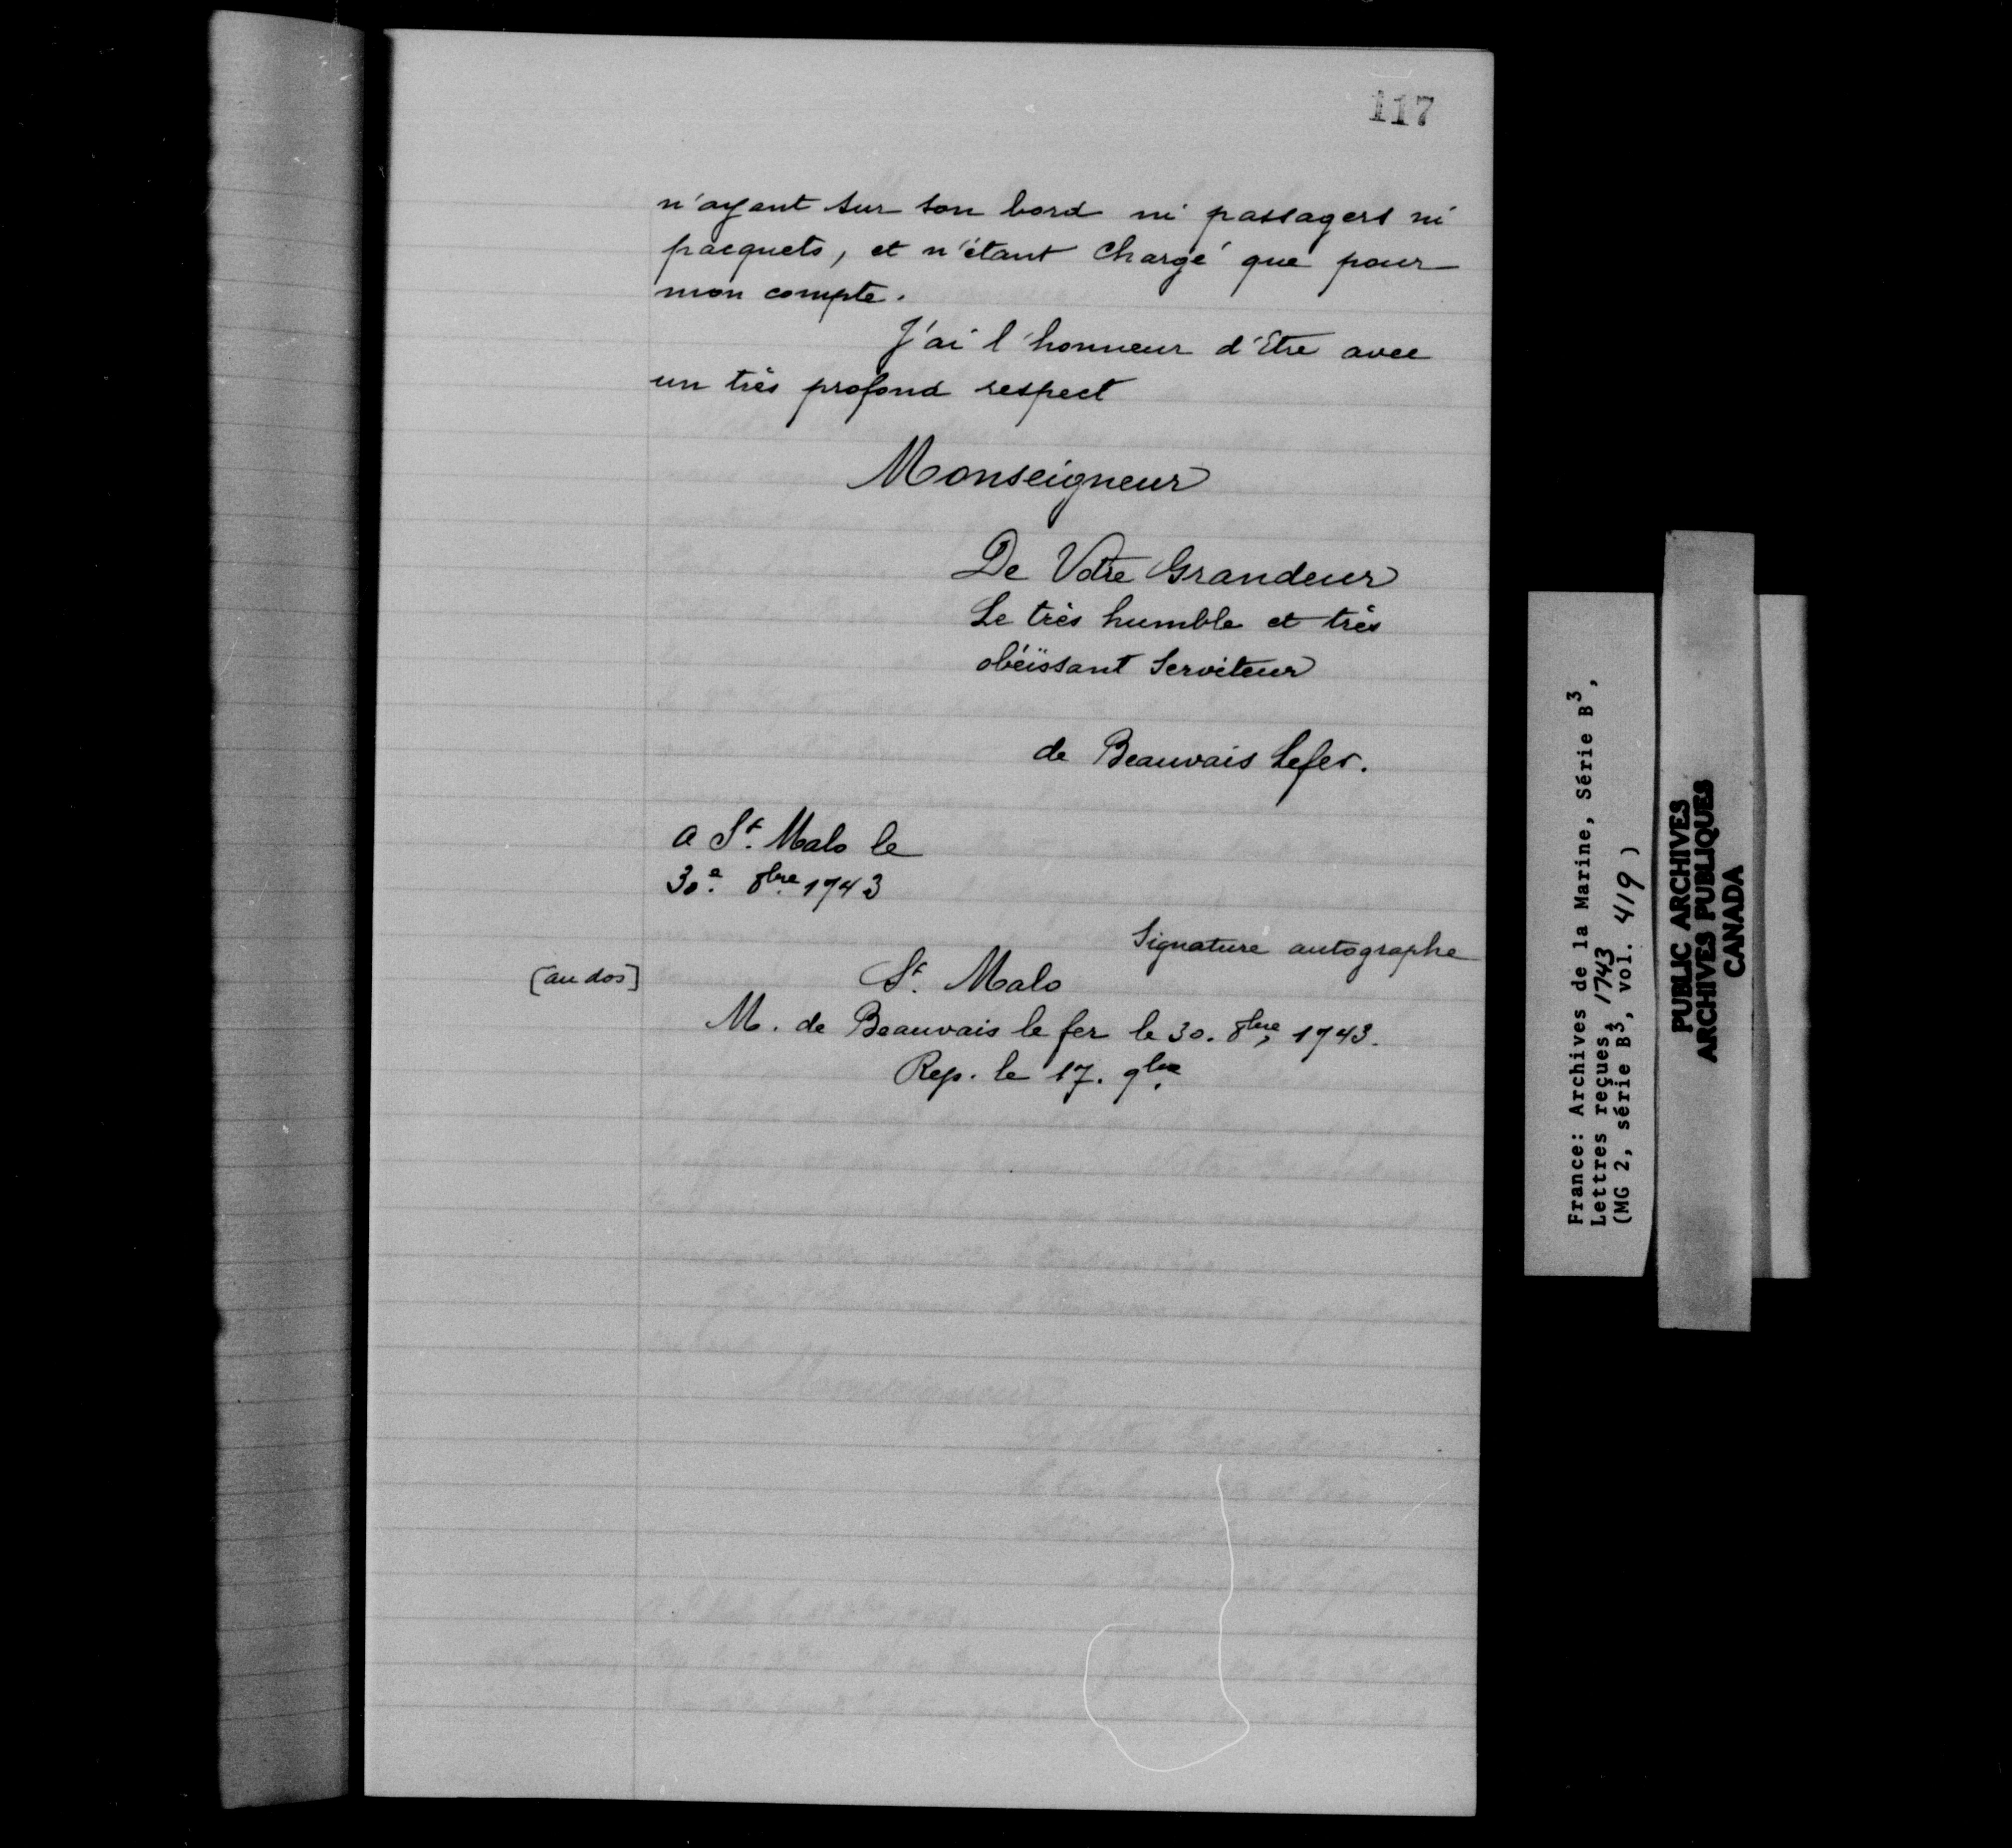 117
n'ayant sur son bord ni passagers ni
pacquets, et n'étant Chargé que pour
mon compte.
J'ai l'honneur d'Etre avec
un très profond respect
Monseigneur
De Votre Grandeur
Le très humble et très
obéïssant Serviteur
de Beauvais Lefer.
a St. Malo le
30e. 8bre 1743
Signature autographe
[au dos]
St. Malo
M. de Beauvais le fer le 30. 8bre, 1743.
Rep. le 17. 9bre
France: Archives de la Marine, Série B3,
Lettres reçues, 1743
(MG 2, série B3, vol. 419)
PUBLIC ARCHIVES
ARCHIVES PUBLIQUES
CANADA